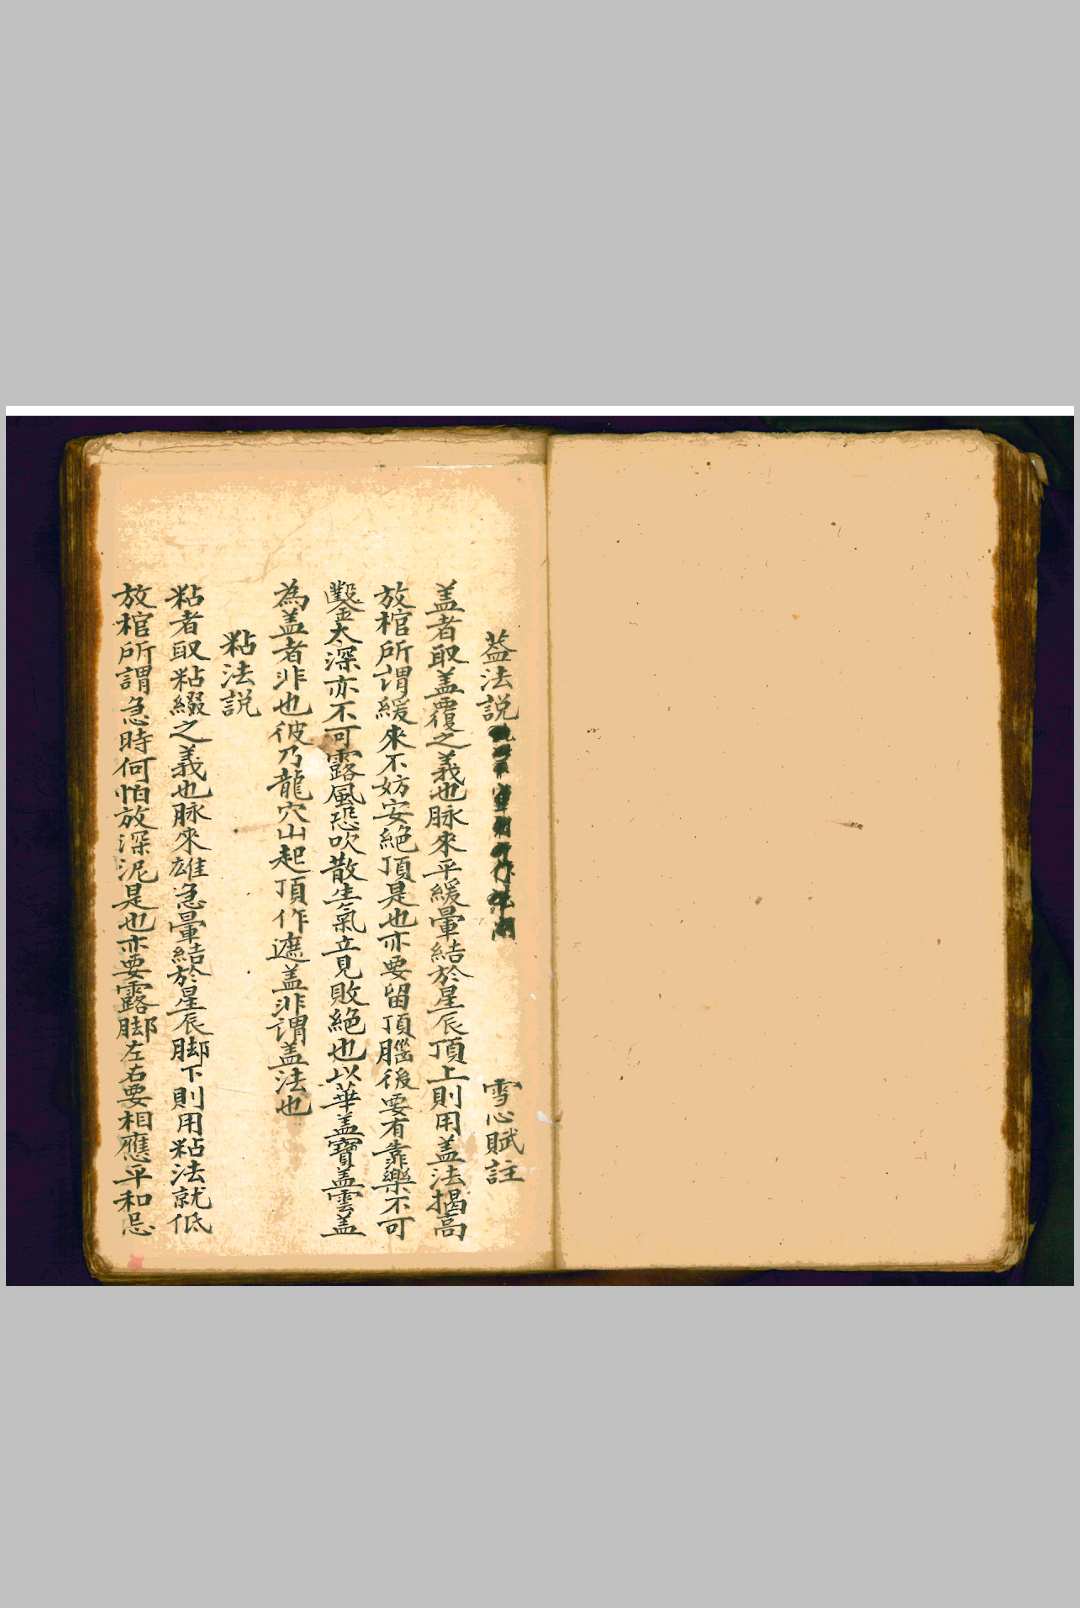 葢法説 雪心賦註
盖者取盖覆之義也脉來平緩暈結於星辰頂上則用盖法揭高
放棺所谓緩來不妨安絶頂是也亦要留頂腦後要有靠樂不可
鑿太深亦不可露風恐吹散生氣立見敗絶也以華盖寳盖雲盖
為盖者非也彼乃龍穴山起頂作遮盖非谓盖法也
粘法説
粘者取粘綴之義也脉來雄急暈結於星辰脚下則用粘法就低
放棺所謂急時何怕放深泥是也亦要露脚左右要相應平和忌